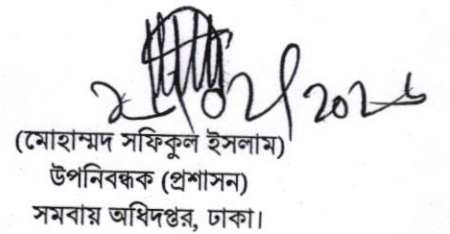 (মোহাম্মদ সফিকুল ইসলাম)
উপনিবন্ধক (প্রশাসন)
সমবায় অধিদপ্তর, ঢাকা।